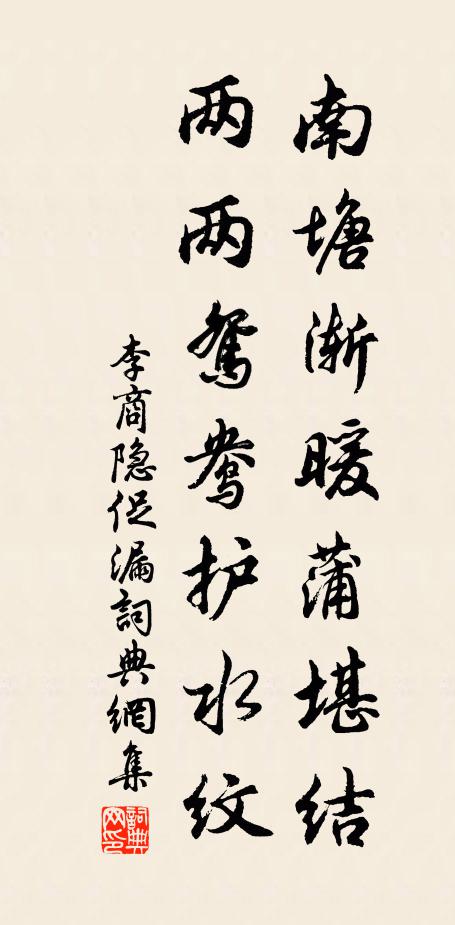 南塘渐暖蒲堪结
两两鸳鸯护水纹
李商隐促漏詞典網集
詞典网印